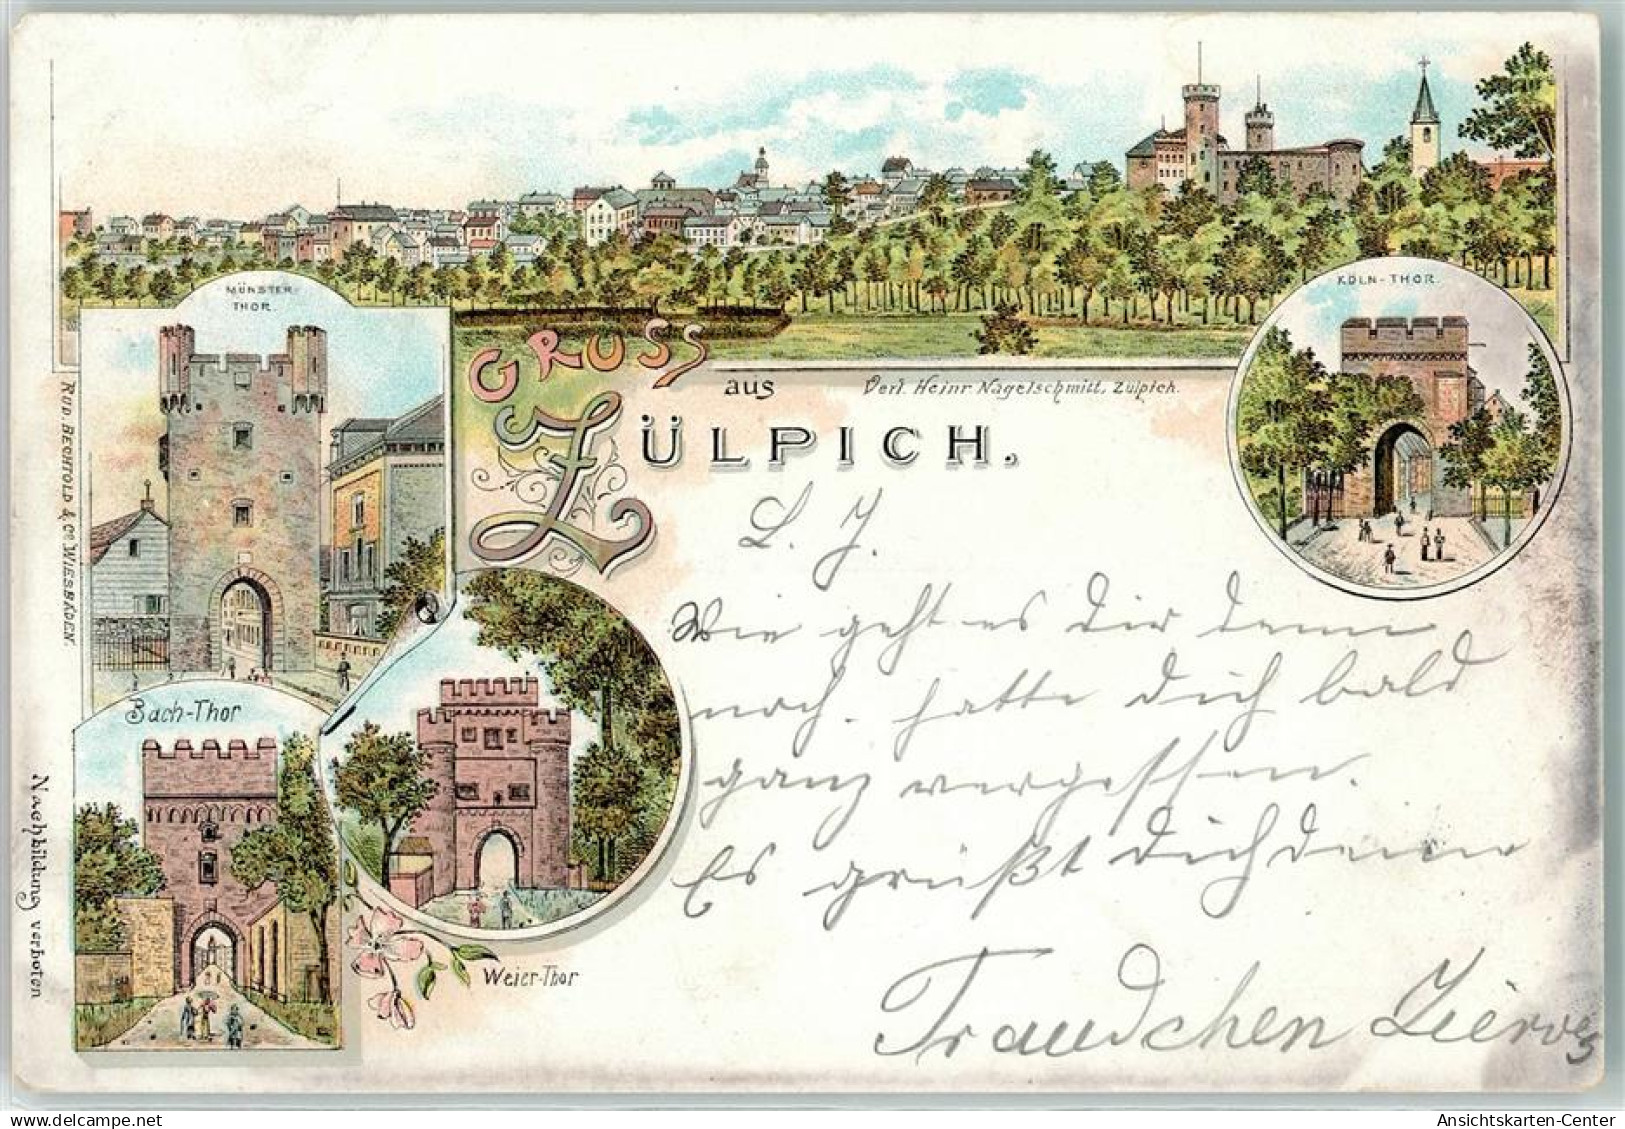 MÜNSTER-
THOR.
KÖLN-THOR.
GRUSS
aus
Verl. Heinr. Nagelschmitt, Zülpich.
ZÜLPICH.
L. J.
Wie geht es Dir denn
noch. hatte Dich bald
ganz vergessen.
Es grüßt Dich deine
Traudchen
Bach-Thor
Weier-Thor
RUD. BECHTOLD & Co. WIESBADEN.
Nachbildung verboten
Ansichtskarten-Center